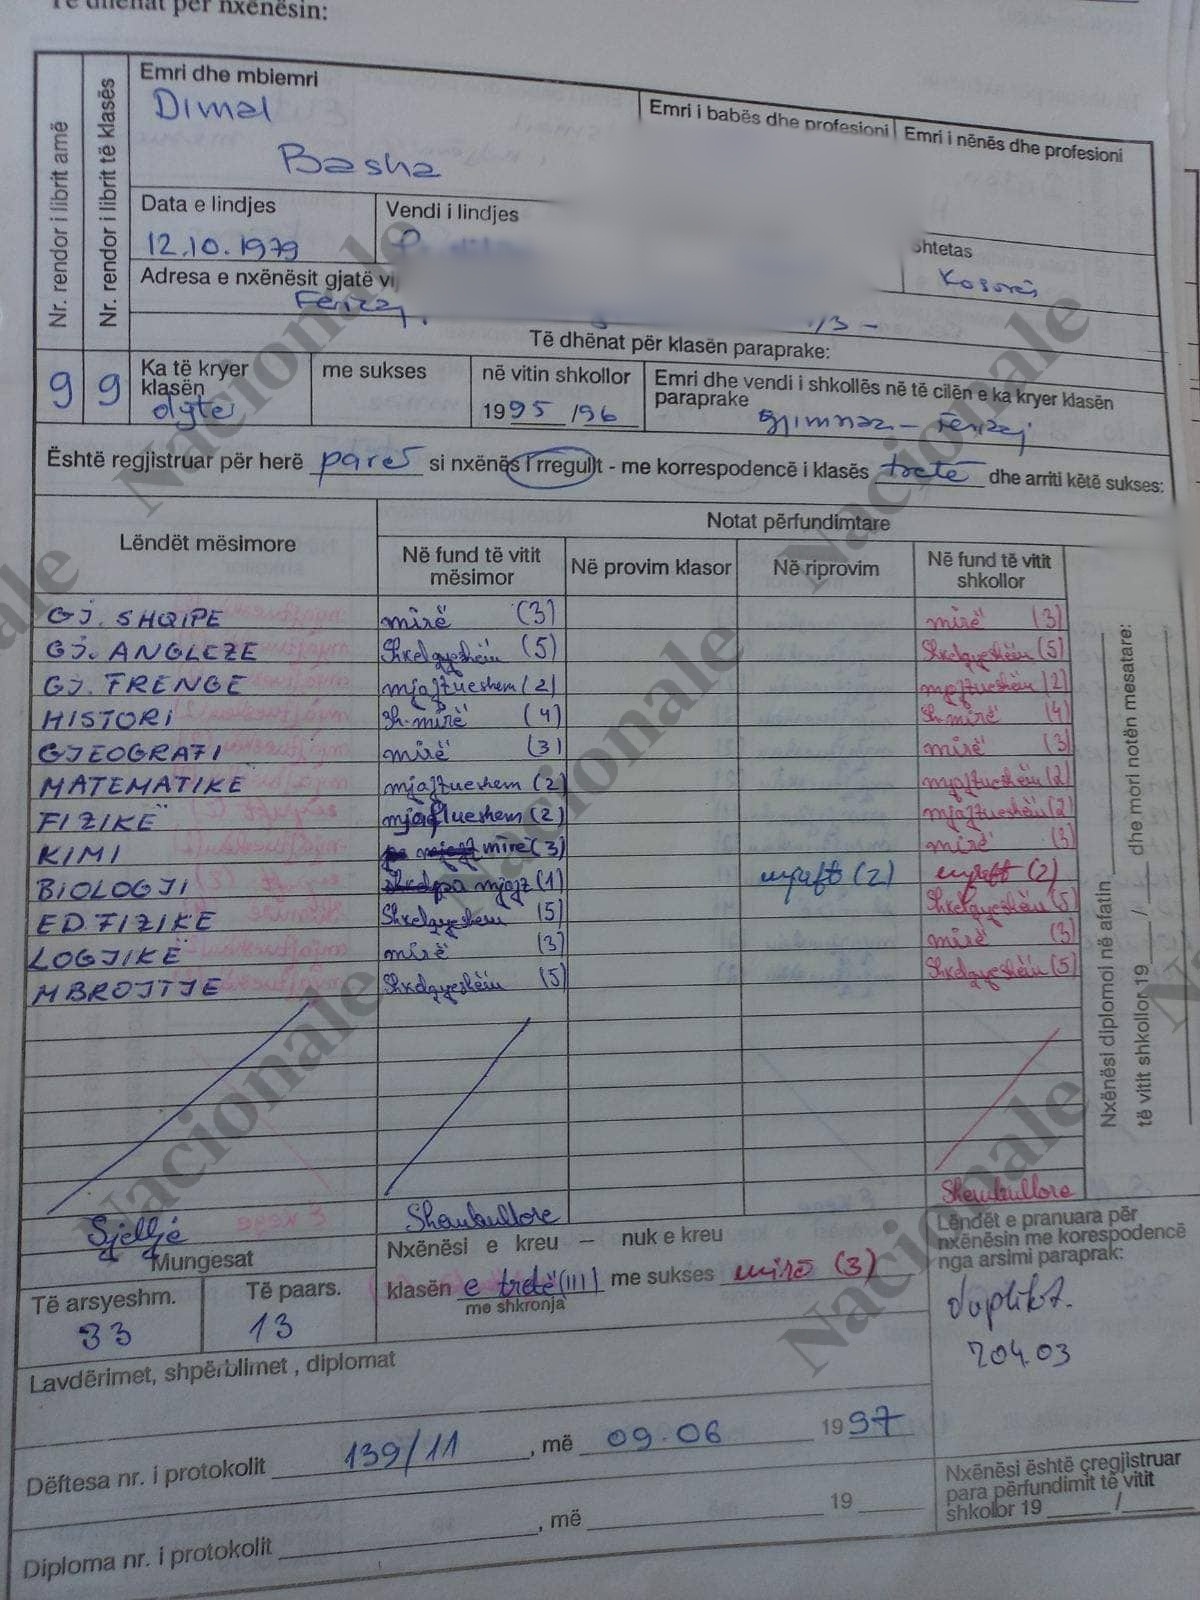 Të dhënat për nxënësin:
Nr. rendor i librit amë
Nr. rendor i librit të klasës
Emri dhe mbiemri
Dimal
Basha
Emri i babës dhe profesioni
Emri i nënës dhe profesioni
Data e lindjes
12.10.1979
Vendi i lindjes
shtetas
Kosovës
Adresa e nxënësit gjatë vi
Ferizaj,
Të dhënat për klasën paraprake:
9 9
Ka të kryer klasën
dytë
me sukses
në vitin shkollor
1995/96
Emri dhe vendi i shkollës në të cilën e ka kryer klasën paraprake
Gjimnaz - Ferizaj
Është regjistruar për herë parë si nxënës i rregullt - me korrespodencë i klasës tretë dhe arriti këtë sukses:
Lëndët mësimore
Notat përfundimtare
Në fund të vitit mësimor
Në provim klasor
Në riprovim
Në fund të vitit shkollor
GJ. SHQIPE mirë (3) mirë (3)
GJ. ANGLEZE Shkëlqyeshëm (5) Shkëlqyeshëm (5)
GJ. FRENGE mjaftueshem (2) mjaftueshëm (2)
HISTORI Sh. mirë (4) Sh. mirë (4)
GJEOGRAFI mirë (3) mirë (3)
MATEMATIKE mjaftueshem (2) mjaftueshëm (2)
FIZIKË mjaftueshem (2) mjaftueshëm (2
KIMI mirë (3) mirë (3)
BIOLOGJI pa mjaft (1) mjaft (2) mjaft (2)
ED. FIZIKE Shkëlqyeshëm (5) Shkëlqyeshëm (5)
LOGJIKË mirë (3) mirë (3)
MBROJTJE Shkëlqyeshëm (5) Shkëlqyeshëm (5)
Sjellje Shembullore Shembullore
Nxënësi diplomoi në afatin
të vitit shkollor 19___/___ dhe mori notën mesatare:
Mungesat
Të arsyeshm.
33
Të paars.
13
Nxënësi e kreu – nuk e kreu
klasën e tretë (III) me sukses mirë (3)
me shkronja
Lëndët e pranuara për nxënësin me korespodencë nga arsimi paraprak:
duplikt.
204.03
Lavdërimet, shpërblimet, diplomat
Dëftesa nr. i protokolit 139/11, më 09.06 1997
Diploma nr. i protokolit ___, më ___ 19___
Nxënësi është çregjistruar para përfundimit të vitit shkollor 19___/___
Nacionale
Nacionale
Nacionale
Nacionale
Nacionale